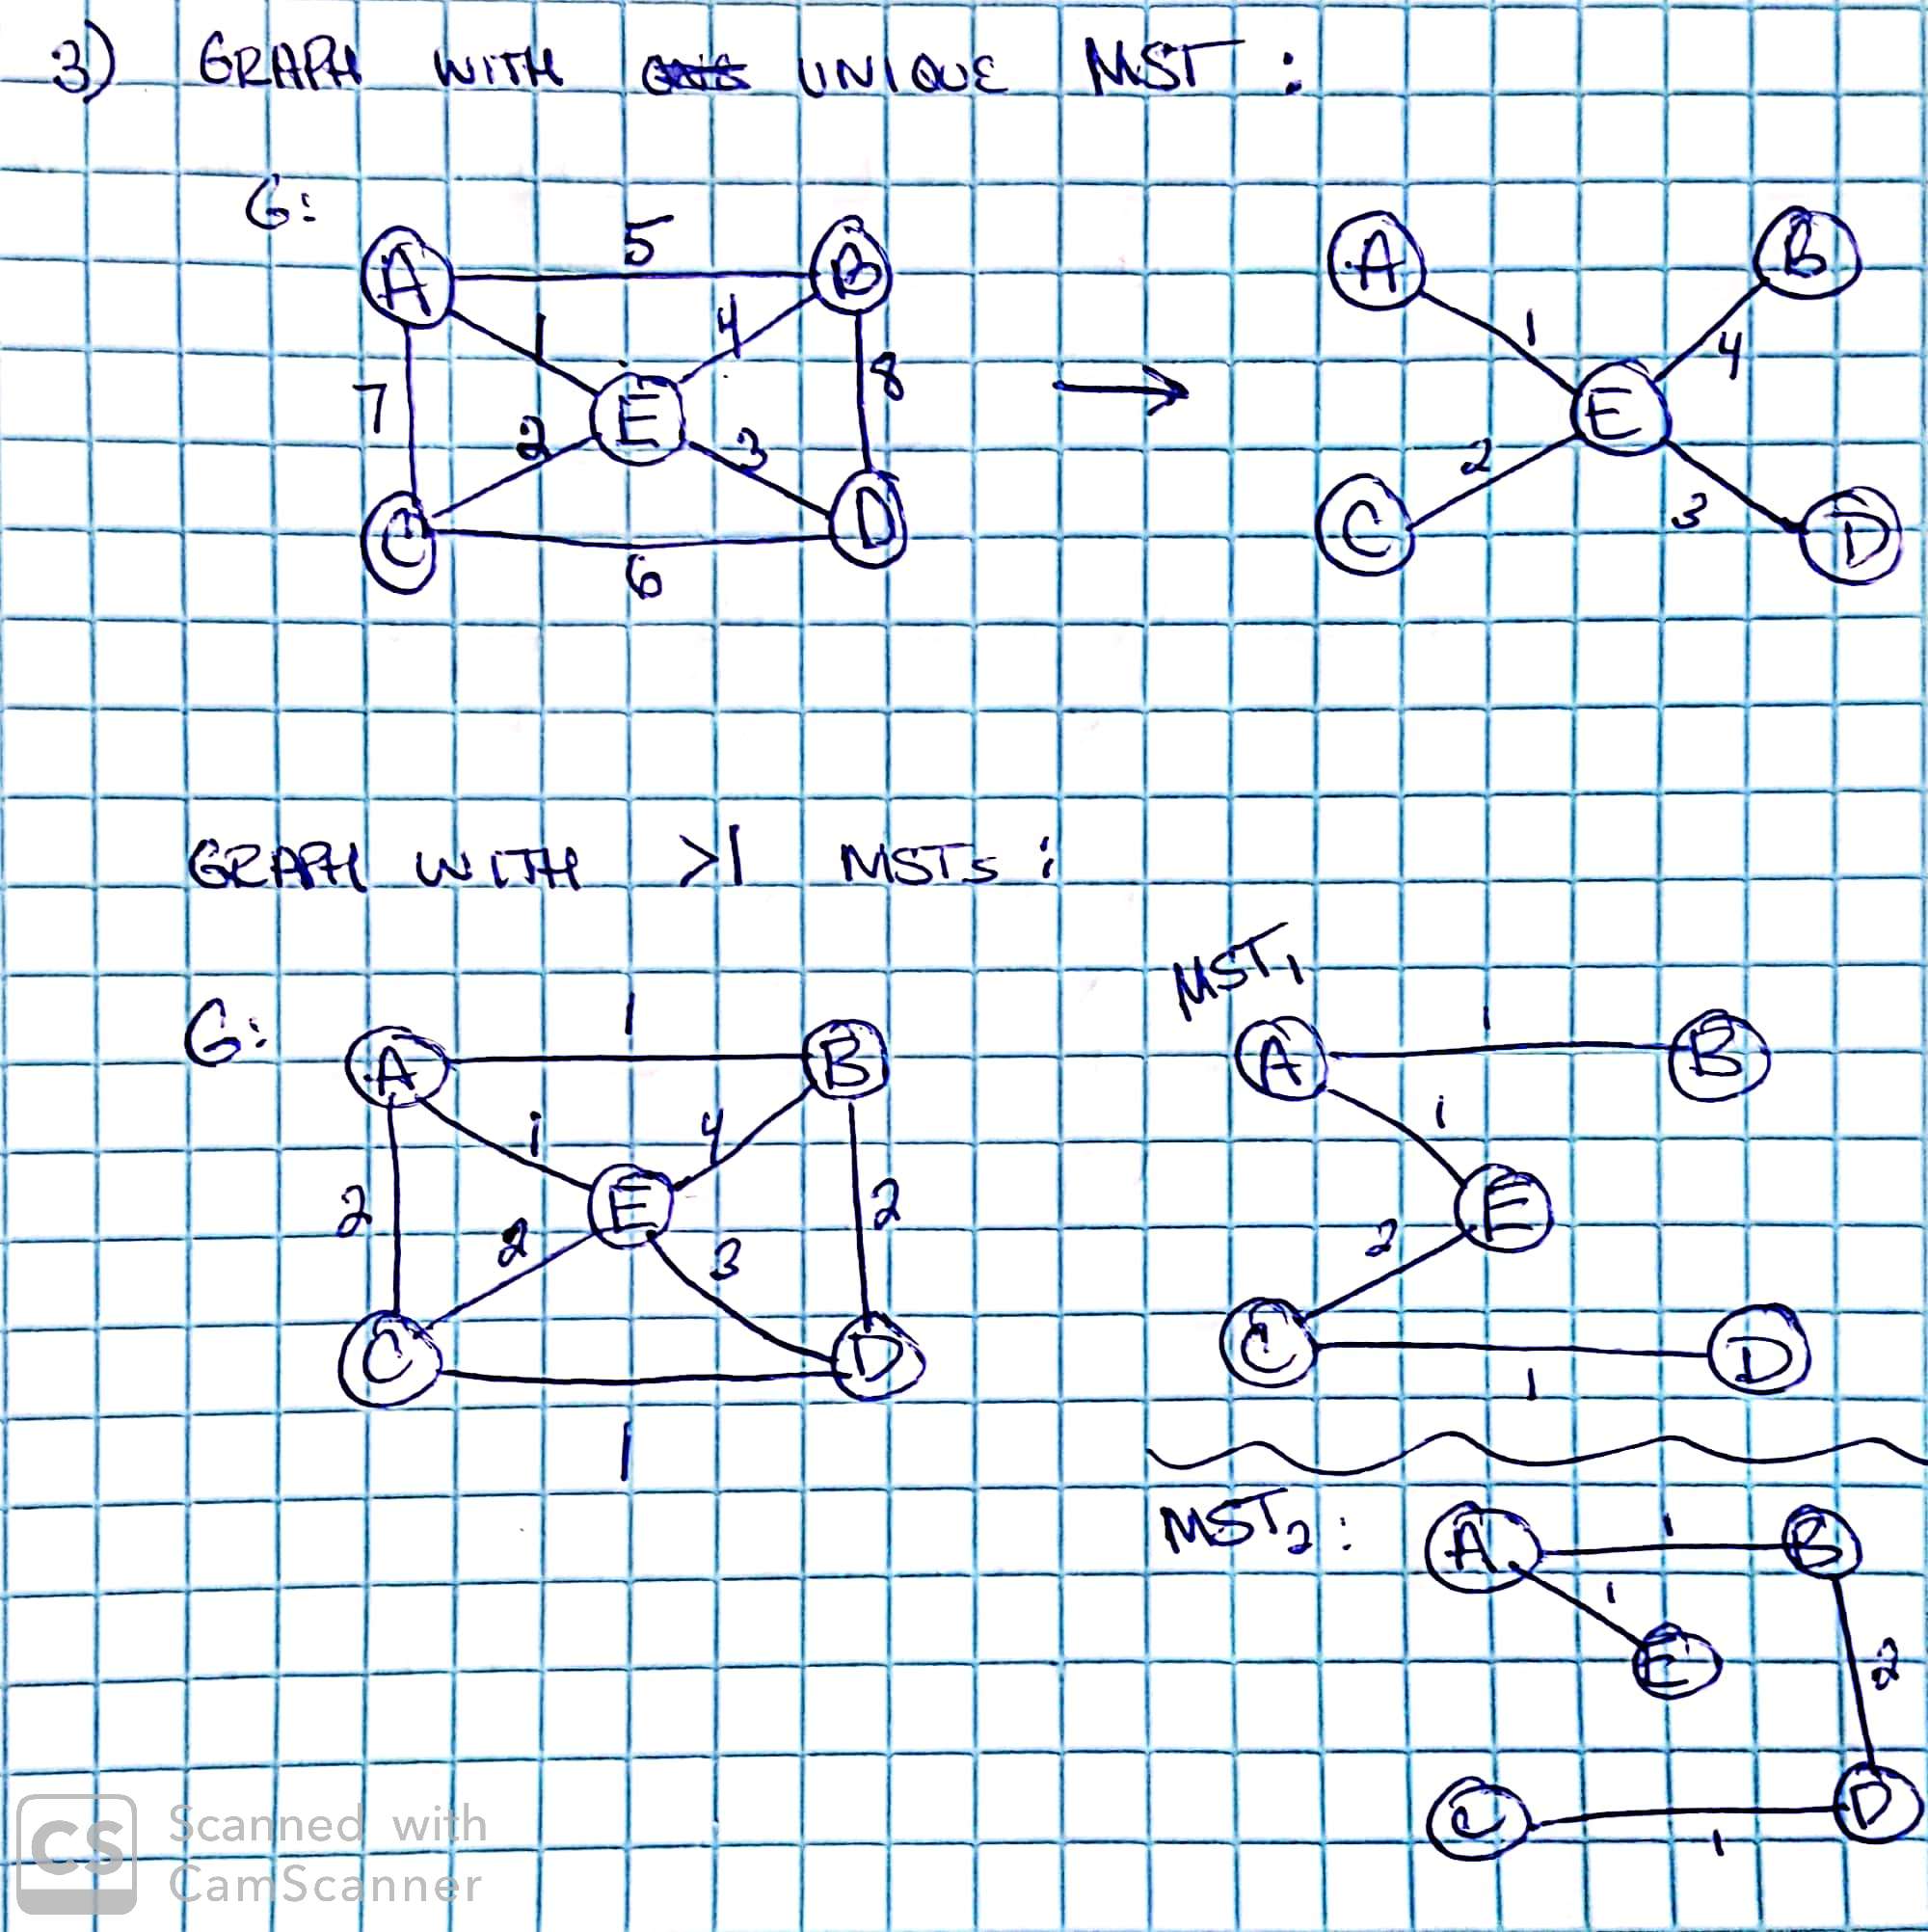 3) GRAPH WITH UNIQUE MST:
G:
A 5 B
1 4
7 E 8
2 3
C D
6
A B
1 4
E
2 3
C D
GRAPH WITH >1 MSTs:
G:
1
A B
1 4
2 E 2
2 3
C D
1
MST1
1
A B
1
E
2
C D
1
MST2:
A 1 B
1
E 2
C D
1
CS Scanned with
CamScanner